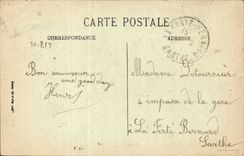 CARTE POSTALE
CORRESPONDANCE
ADRESSE
Bon souvenir
one good day.
Henri
Madame Letournier
4 impasse de la gare
à La Ferté Bernard
Sarthe